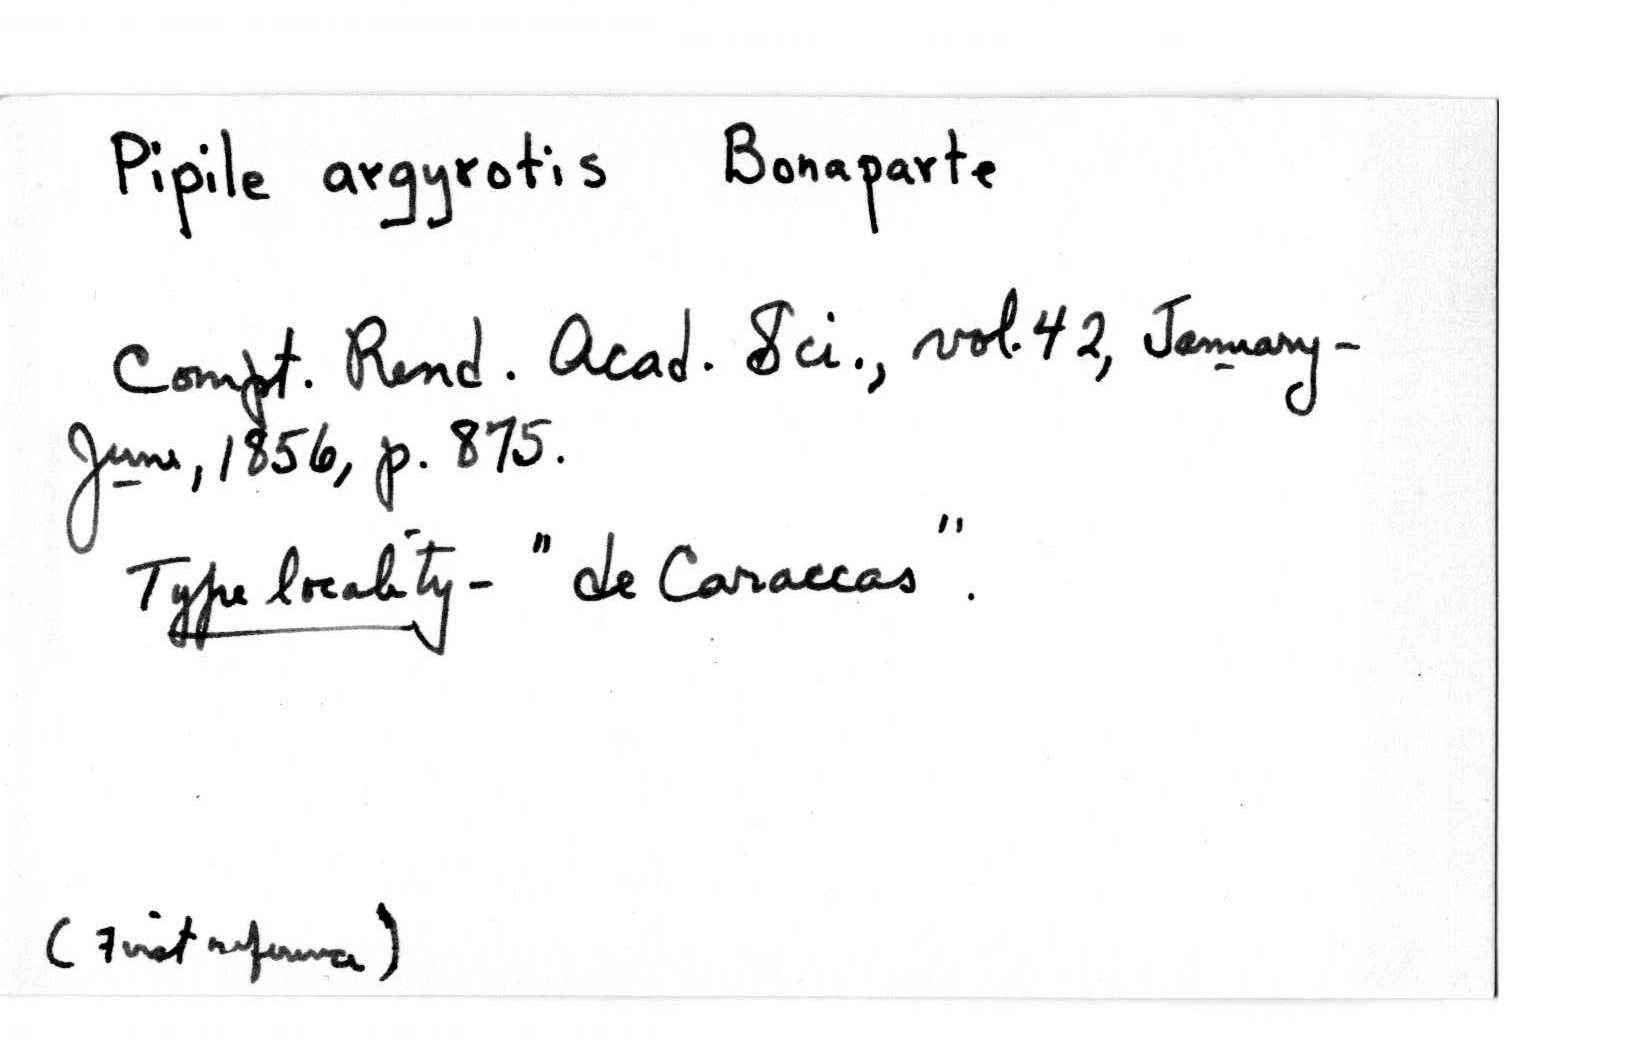 Pipile argyrotis Bonaparte
Compt. Rend. Acad. Sci., vol. 42, January-
June, 1856, p. 875.
Type locality - "de Caraccas".
(First reference)